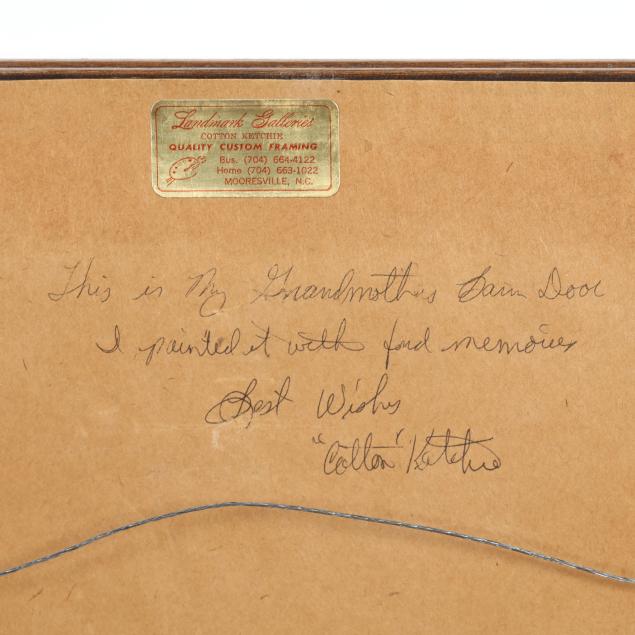 Landmark Galleries
COTTON KETCHIE
QUALITY CUSTOM FRAMING
Bus. (704) 664-4122
Home (704) 663-1022
MOORESVILLE, N.C.
This is My Grandmothers Barn Door
I painted it with fond memories
Best Wishes
"Cotton" Ketchie